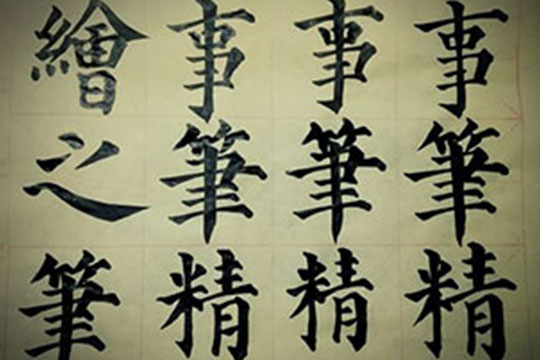 事筆精
事筆精
事筆精
繪之筆